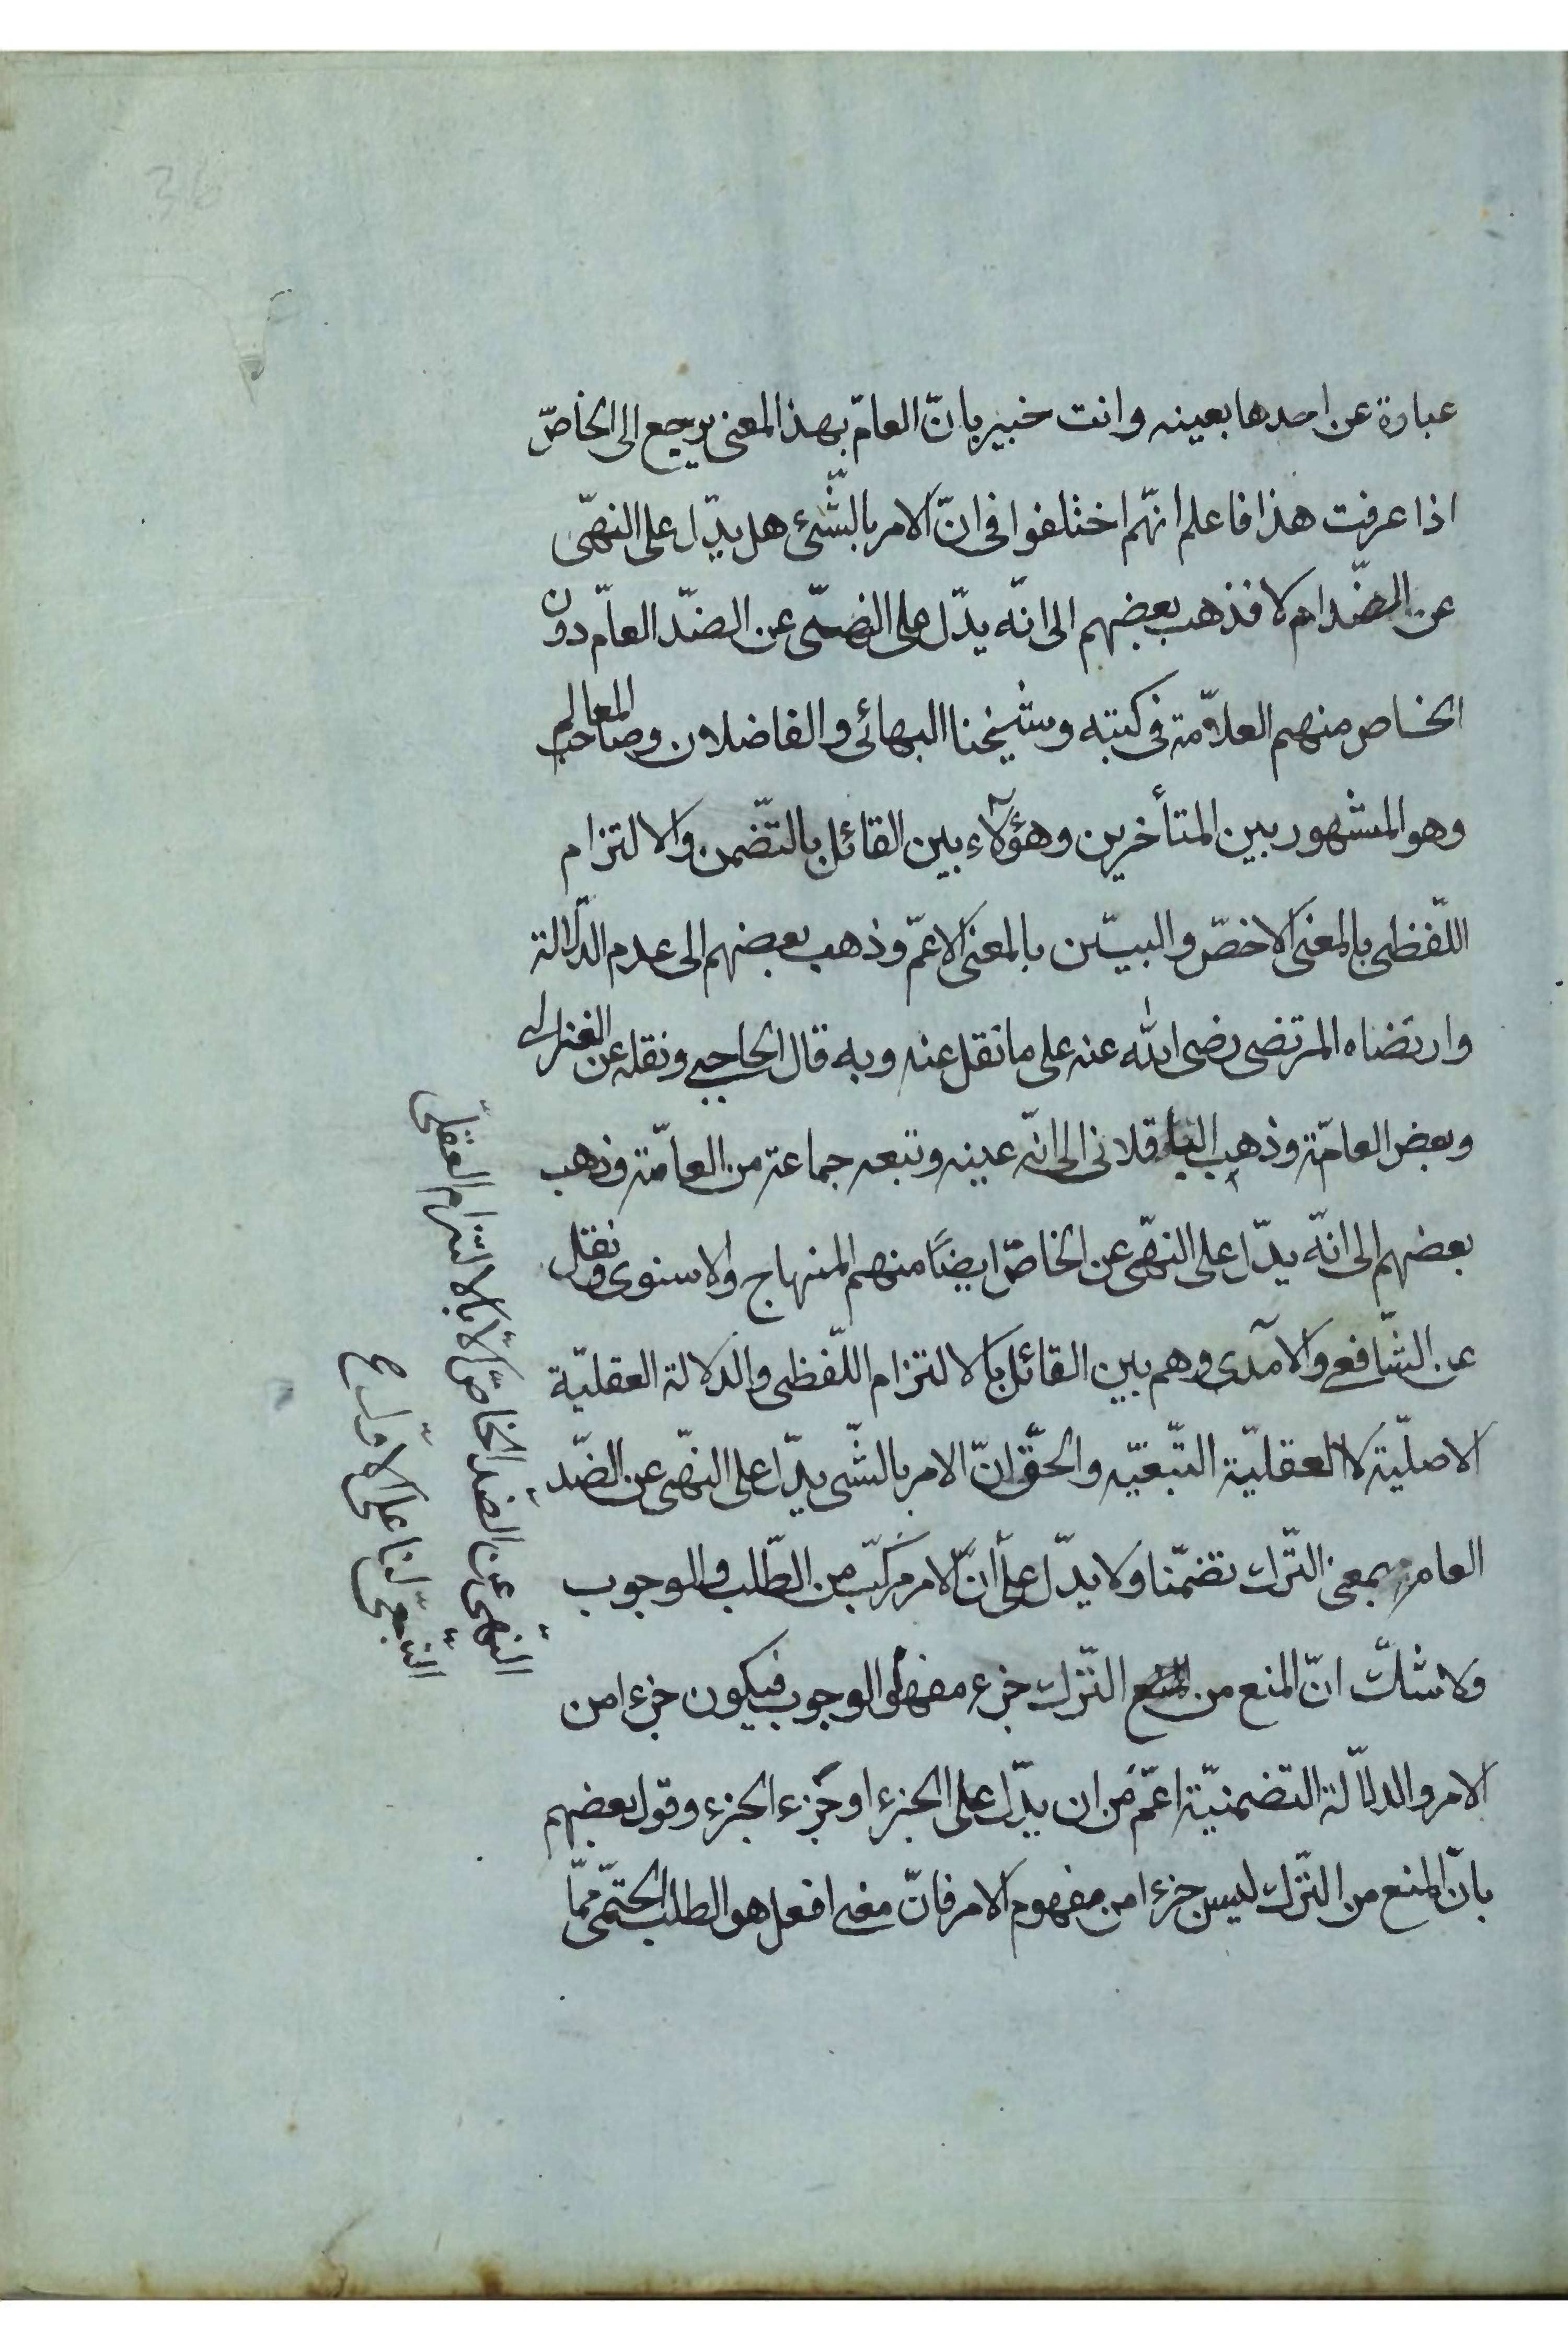 عبارة عن احدها بعينه وانت خبير بانّ العامّ بهذا المعنى يرجع الى الخاصّ
اذا عرفت هذا فاعلم انّهم اختلفوا فى انّ الامر بالشّئ هل يدّل على النهّى
عن الضّد ام لا فذهب بعضهم الى انّه يدّل على النهّى عن الضّد العامّ دون
الخاص منهم العلاّمة فى كتبه وشيخنا البهائى والفاضلان وصاحب المعالم
وهو المشهور بين المتأخرين وهؤلآء بين القائل بالتّضمن والالتزام
اللّفظى بالمعنى الاخصّ والبيّن بالمعنى الاعمّ وذهب بعضهم الى عدم الدّلالة
وارتضاه المرتضى رضى الله عنه على ما نقل عنه وبه قال الحاجبى ونقله عن الغزالى
وبعض العامّة وذهب الباقلانى الى انّه عينه وتبعه جماعة من العامّة وذهب
بعضهم الى انّه يدّل على النهّى عن الخاصّ ايضاً منهم المنهاج والاسنوى ونقل
عن الشّافعى والآمدى وهم بين القائل بالالتزام اللّفظى والدلالة العقليّة
الاصليّة لا العقليّة التّبعيّه والحقّ انّ الامر بالشّى يدّل على النهّى عن الضّد
العام بمعنى التّرك تضمّنا ولا يدّل على انّ الامر مركّب من الطّلب والوجوب
ولا شكّ انّ المنع من التّرك جزء مفهوم الوجوب فيكون جزءا من
الامر والدلالة التضمنيّة اعمّ من ان يدّل على الجزء او جزء الجزء وقول بعضهم
بانّ المنع من التّرك ليس جزءا من مفهوم الامر فانّ معنى افعل هو الطلب الحتمّى ممّا
النهّى عن الضّد الخاصّ الّا بالالتزام العقلىّ
التّبعىّ لنا على الاوّل